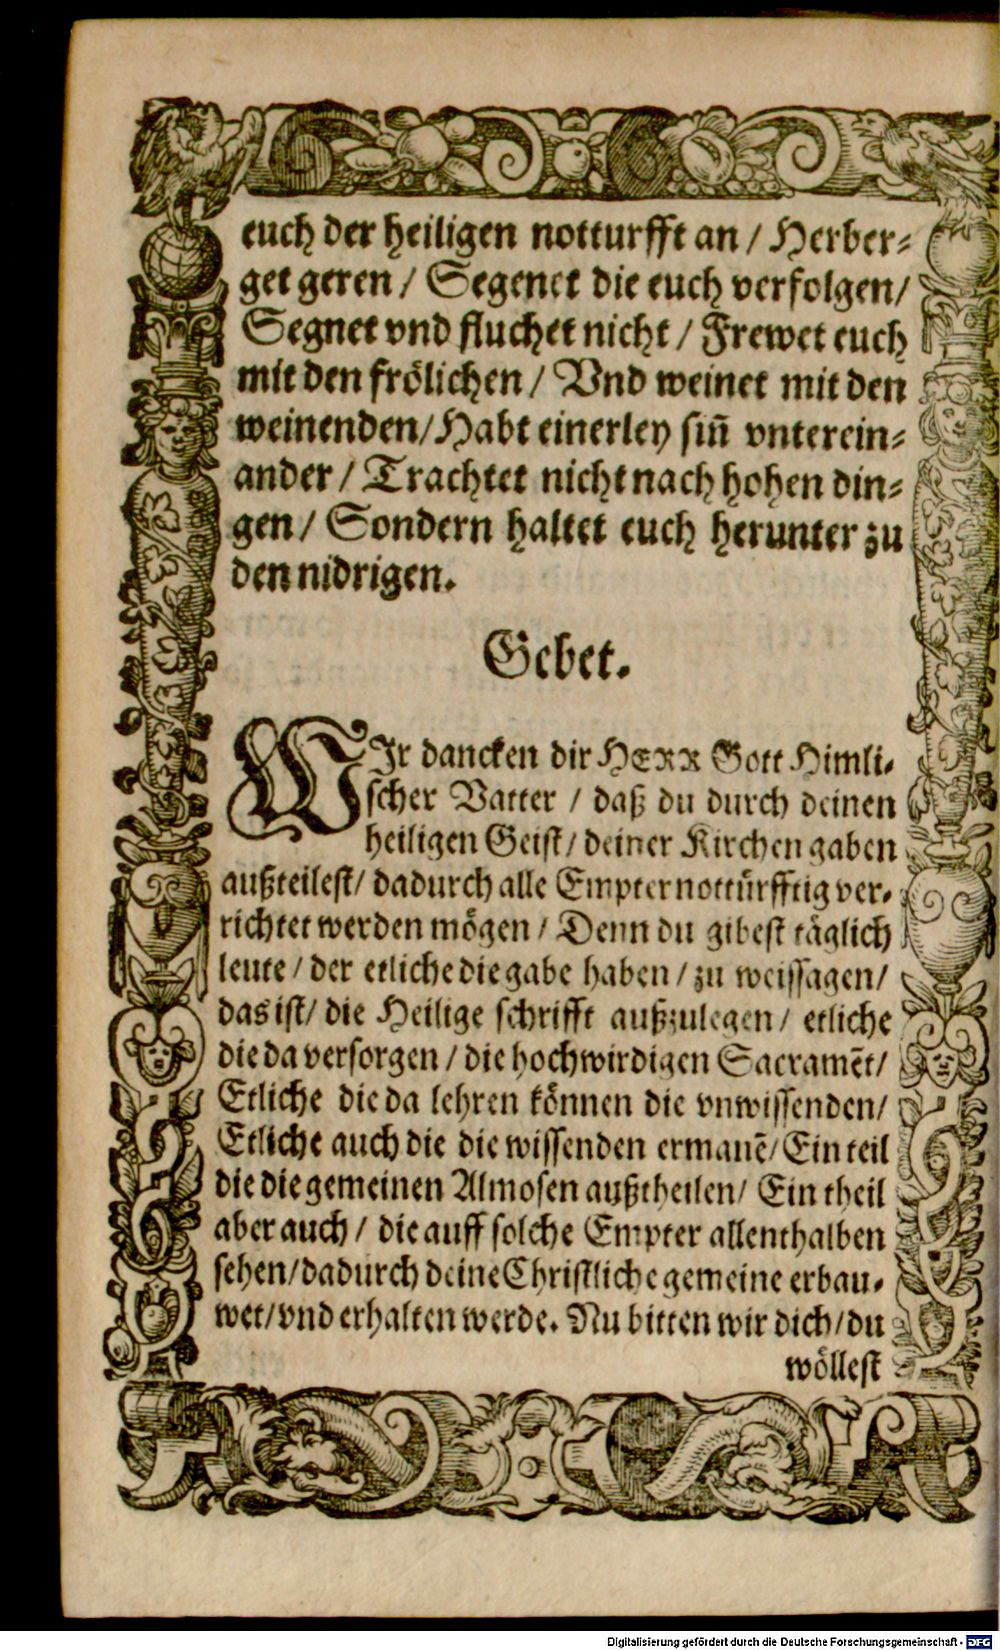 euch der heiligen notturfft an / Herber⸗
get geren / Segenet die euch verfolgen /
Segnet vnd fluchet nicht / Frewet euch
mit den frölichen / Vnd weinet mit den
weinenden / Habt einerley siñ vnterein⸗
ander / Trachtet nicht nach hohen din⸗
gen / Sondern haltet euch herunter zu
den nidrigen.
Gebet.
WIr dancken dir HERR Gott Himli⸗
scher Vatter / daß du durch deinen
heiligen Geist / deiner Kirchen gaben
außteilest / dadurch alle Empter nottürfftig ver⸗
richtet werden mögen / Denn du gibest täglich
leute / der etliche die gabe haben / zu weissagen /
das ist / die Heilige schrifft außzulegen / etliche
die da versorgen / die hochwirdigen Sacramēt /
Etliche die da lehren können die vnwissenden /
Etliche auch die die wissenden ermanē / Ein teil
die die gemeinen Almosen außtheilen / Ein theil
aber auch / die auff solche Empter allenthalben
sehen / dadurch deine Christliche gemeine erbau⸗
wet / vnd erhalten werde. Nu bitten wir dich / du
wöllest
Digitalisierung gefördert durch die Deutsche Forschungsgemeinschaft - DFG